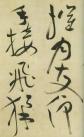 摧月支仰
手接飛猱